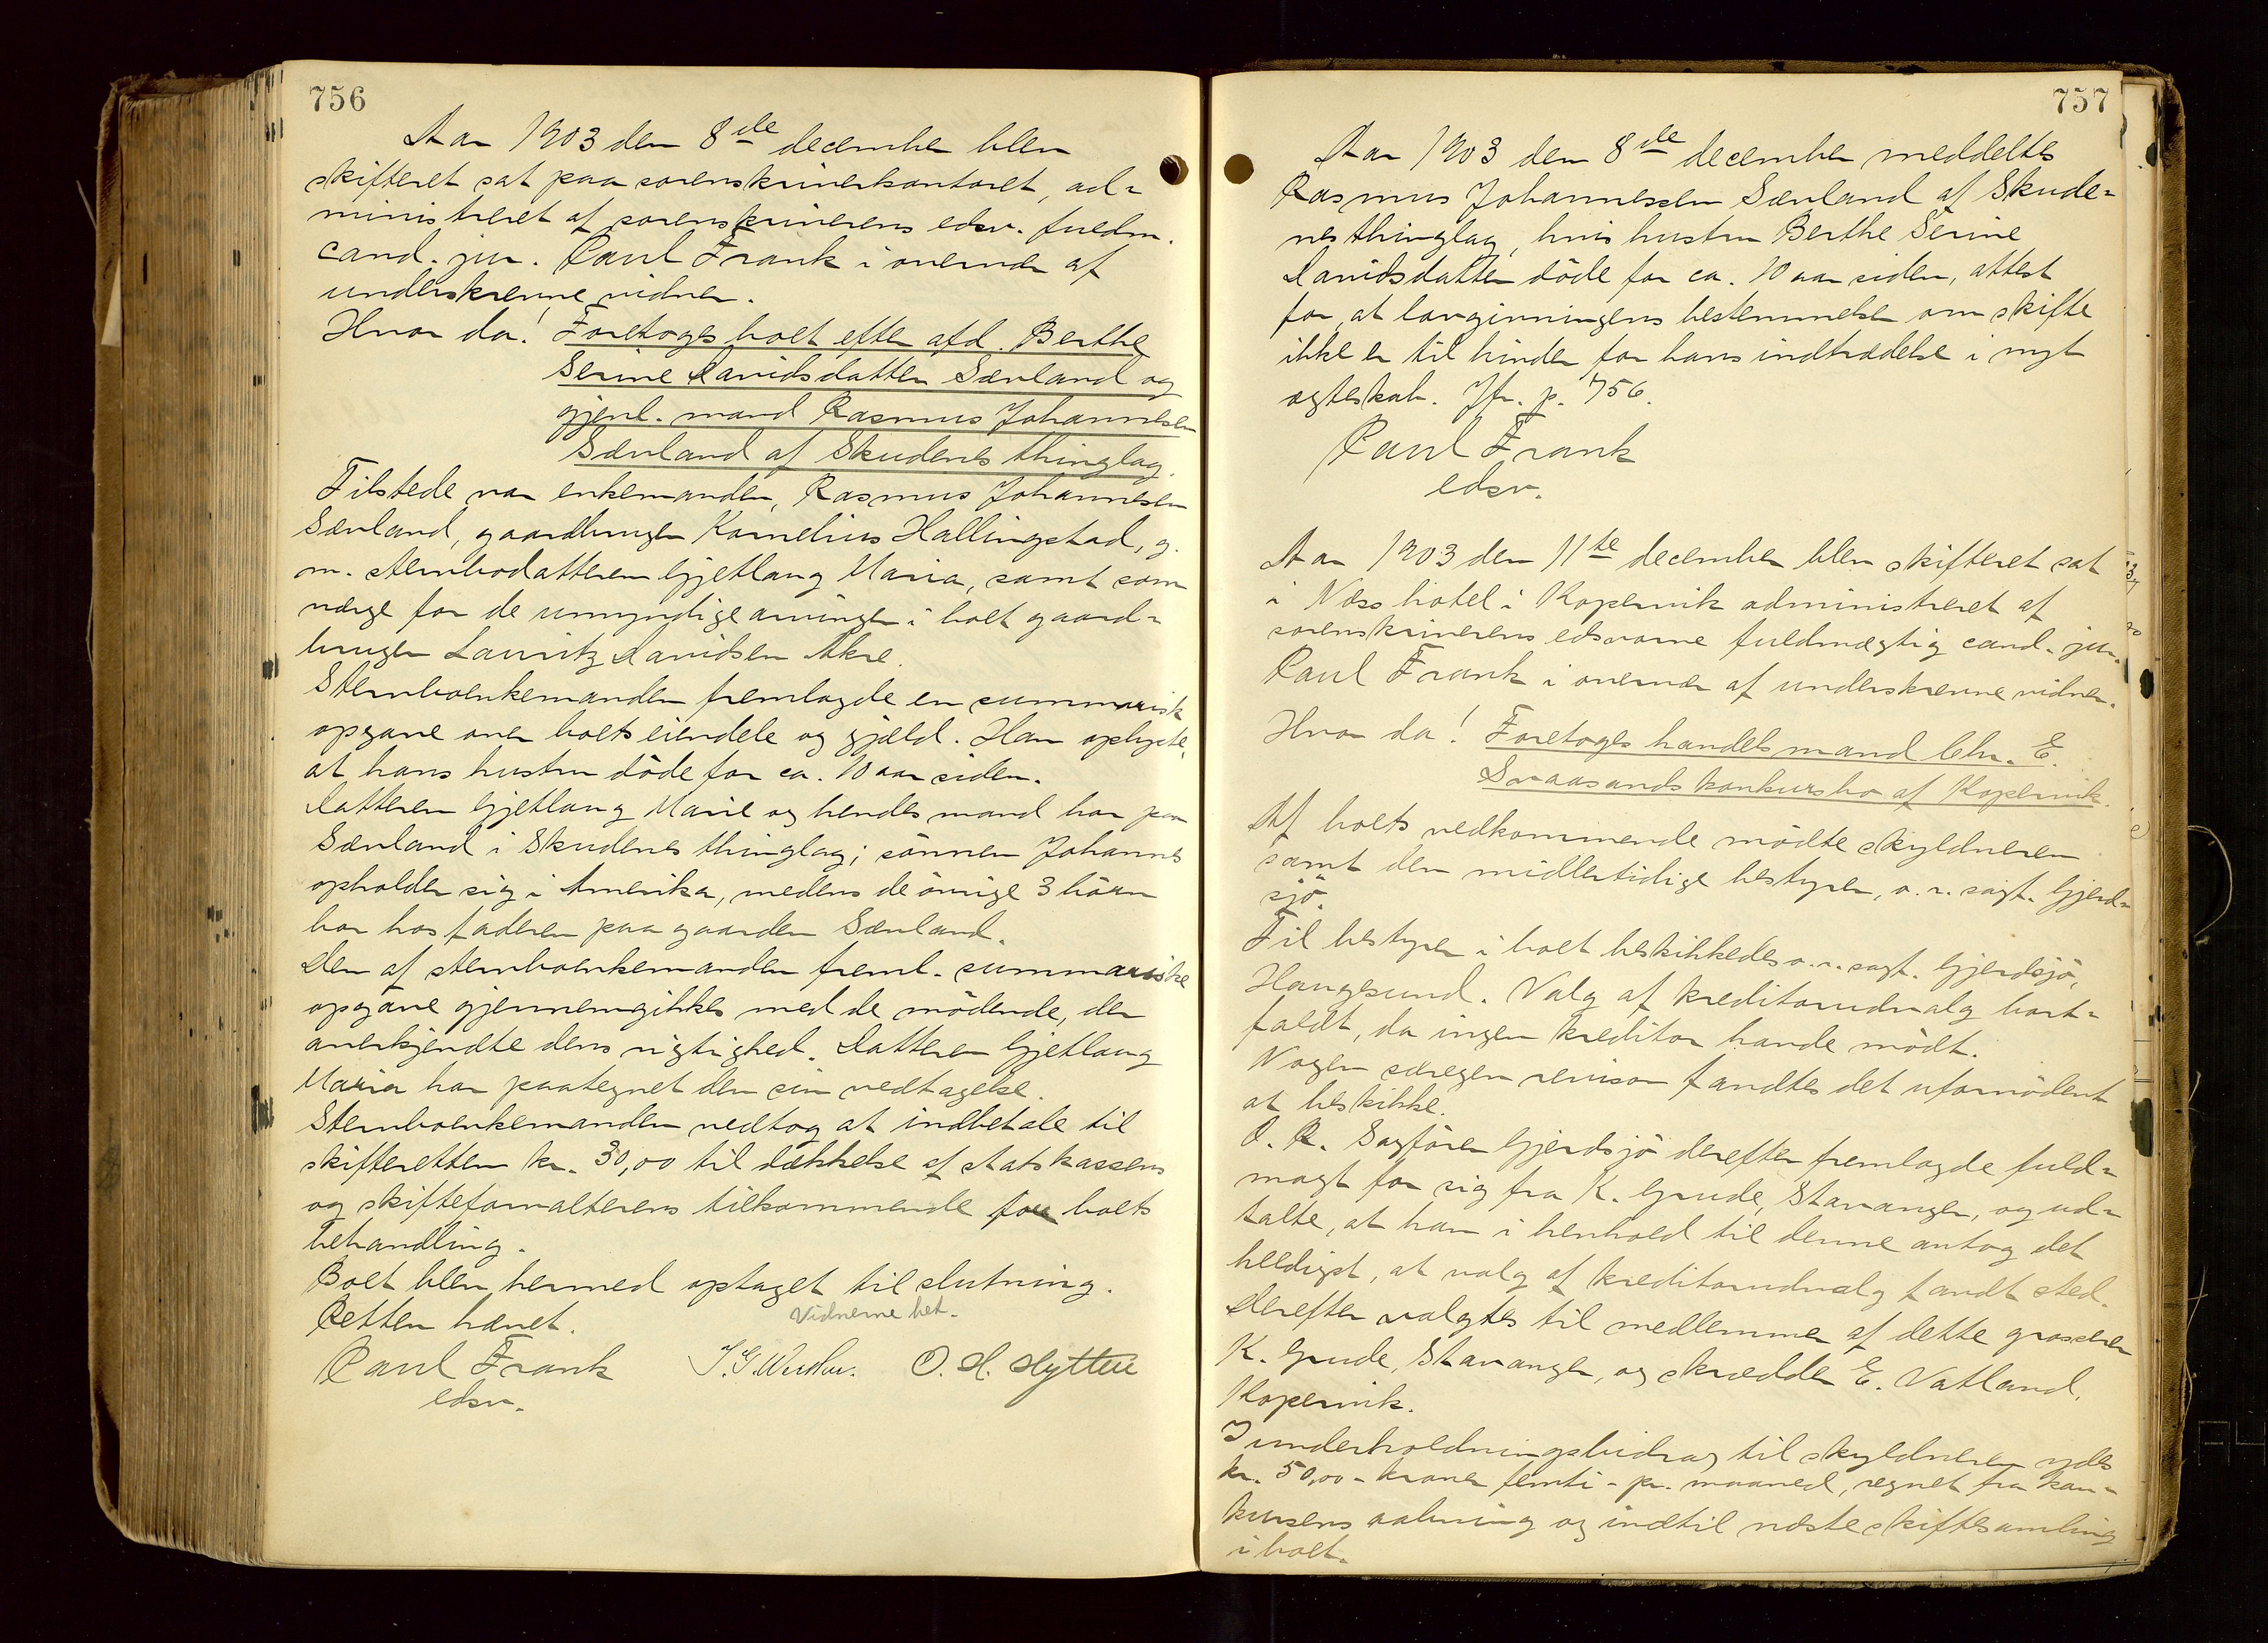 756
Aar 1903 den 8de december blev
skifteret sat paa sorenskriverkontoret, ad-
ministreret af sorenskriverens edsv. fuldm.
cand. jur. Paul Frank i overvær af
underskrevne vidner.
Hvor da! Foretoges boet efter afd. Berthe
Serine Davidsdatter Sævland og
gjenl. mand Rasmus Johannesen
Sævland af Skudenes thinglag.
Tilstede var enkemanden, Rasmus Johannesen
Sævland, gaardbruger Kornelius Hallingstad, g.
m. stervbodatteren Gjetlaug Maria, samt som
værge for de umyndige arvinger i boet gaard-
bruger Lauritz Davidsen Akre.
Stervboenkemanden fremlagde en summarisk
opgave over boets eiendele og gjæld. Han oplyste,
at hans hustru döde for ca. 10 aar siden.
Datteren Gjetlaug Marie og hendes mand bor paa
Sævland i Skudenes thinglag; sönnen Johannes
opholder sig i Amerika, medens de övrige 3 börn
bor hos faderen paa gaarden Sævland.
Den af stervboenkemanden freml. summariske
opgave gjennemgikkes med de mödende, der
anerkjendte dens rigtighed. Datteren Gjetlaug
Maria har paategnet den sin vedtagelse.
Stervboenkemanden vedtog at indbetale til
skifteretten kr. 30,00 til dækkelse af statskassens
og skifteforvalterens tilkommende for boets
behandling.
Boet blev hermed optaget til slutning.
Retten hævet.
Vidnerne bet.
Paul Frank O. H. Hytten
edsv.
757
Aar 1903 den 8de december meddeltes
Rasmus Johannessen Sævland af Skude-
nes thinglag, hvis hustru Berthe Serine
Davidsdatter döde for ca. 10 aar siden, attest
for, at lovgivningens bestemmelse om skifte
ikke er til hinder for hans indtrædelse i nyt
ægteskab. Jfr. p. 756.
Paul Frank
edsv.
Aar 1903 den 11te december blev skifteret sat
i Næss hotel i Kopervik administreret af
sorenskriverens edsvorne fuldmægtig cand. jur.
Paul Frank i overvær af underskrevne vidner.
Hvor da! Foretoges handelsmand Chr. E.
Svaasands konkursbo af Kopervik.
Af boets vedkommende mödte skyldneren
samt den midlertidige bestyrer, o. r. sagf. Gjerd-
sjö.
Til bestyrer i boet beskikkedes o. r. sagf. Gjerdsjö,
Haugesund. Valg af kreditorudvalg bort-
faldt, da ingen kreditor havde mödt.
Nogen særegen revisor fandtes det ufornödent
at beskikke.
O. R. Sagförer Gjerdsjö derefter fremlagde fuld-
magt for sig fra K. Grude, Stavanger, og ud-
talte, at han i henhold til denne antog det
heldigst, at valg af kreditorudvalg fandt sted.
Derefter valgtes til medlemmer af dette grosserer
K. Grude, Stavanger, og skrædder E. Vatland,
Kopervik.
I underholdningsbidrag til skyldneren ydes
kr. 50,00 - kroner femti - pr. maaned, regnet fra kon-
kursens aabning og indtil næste skiftesamling
i boet.